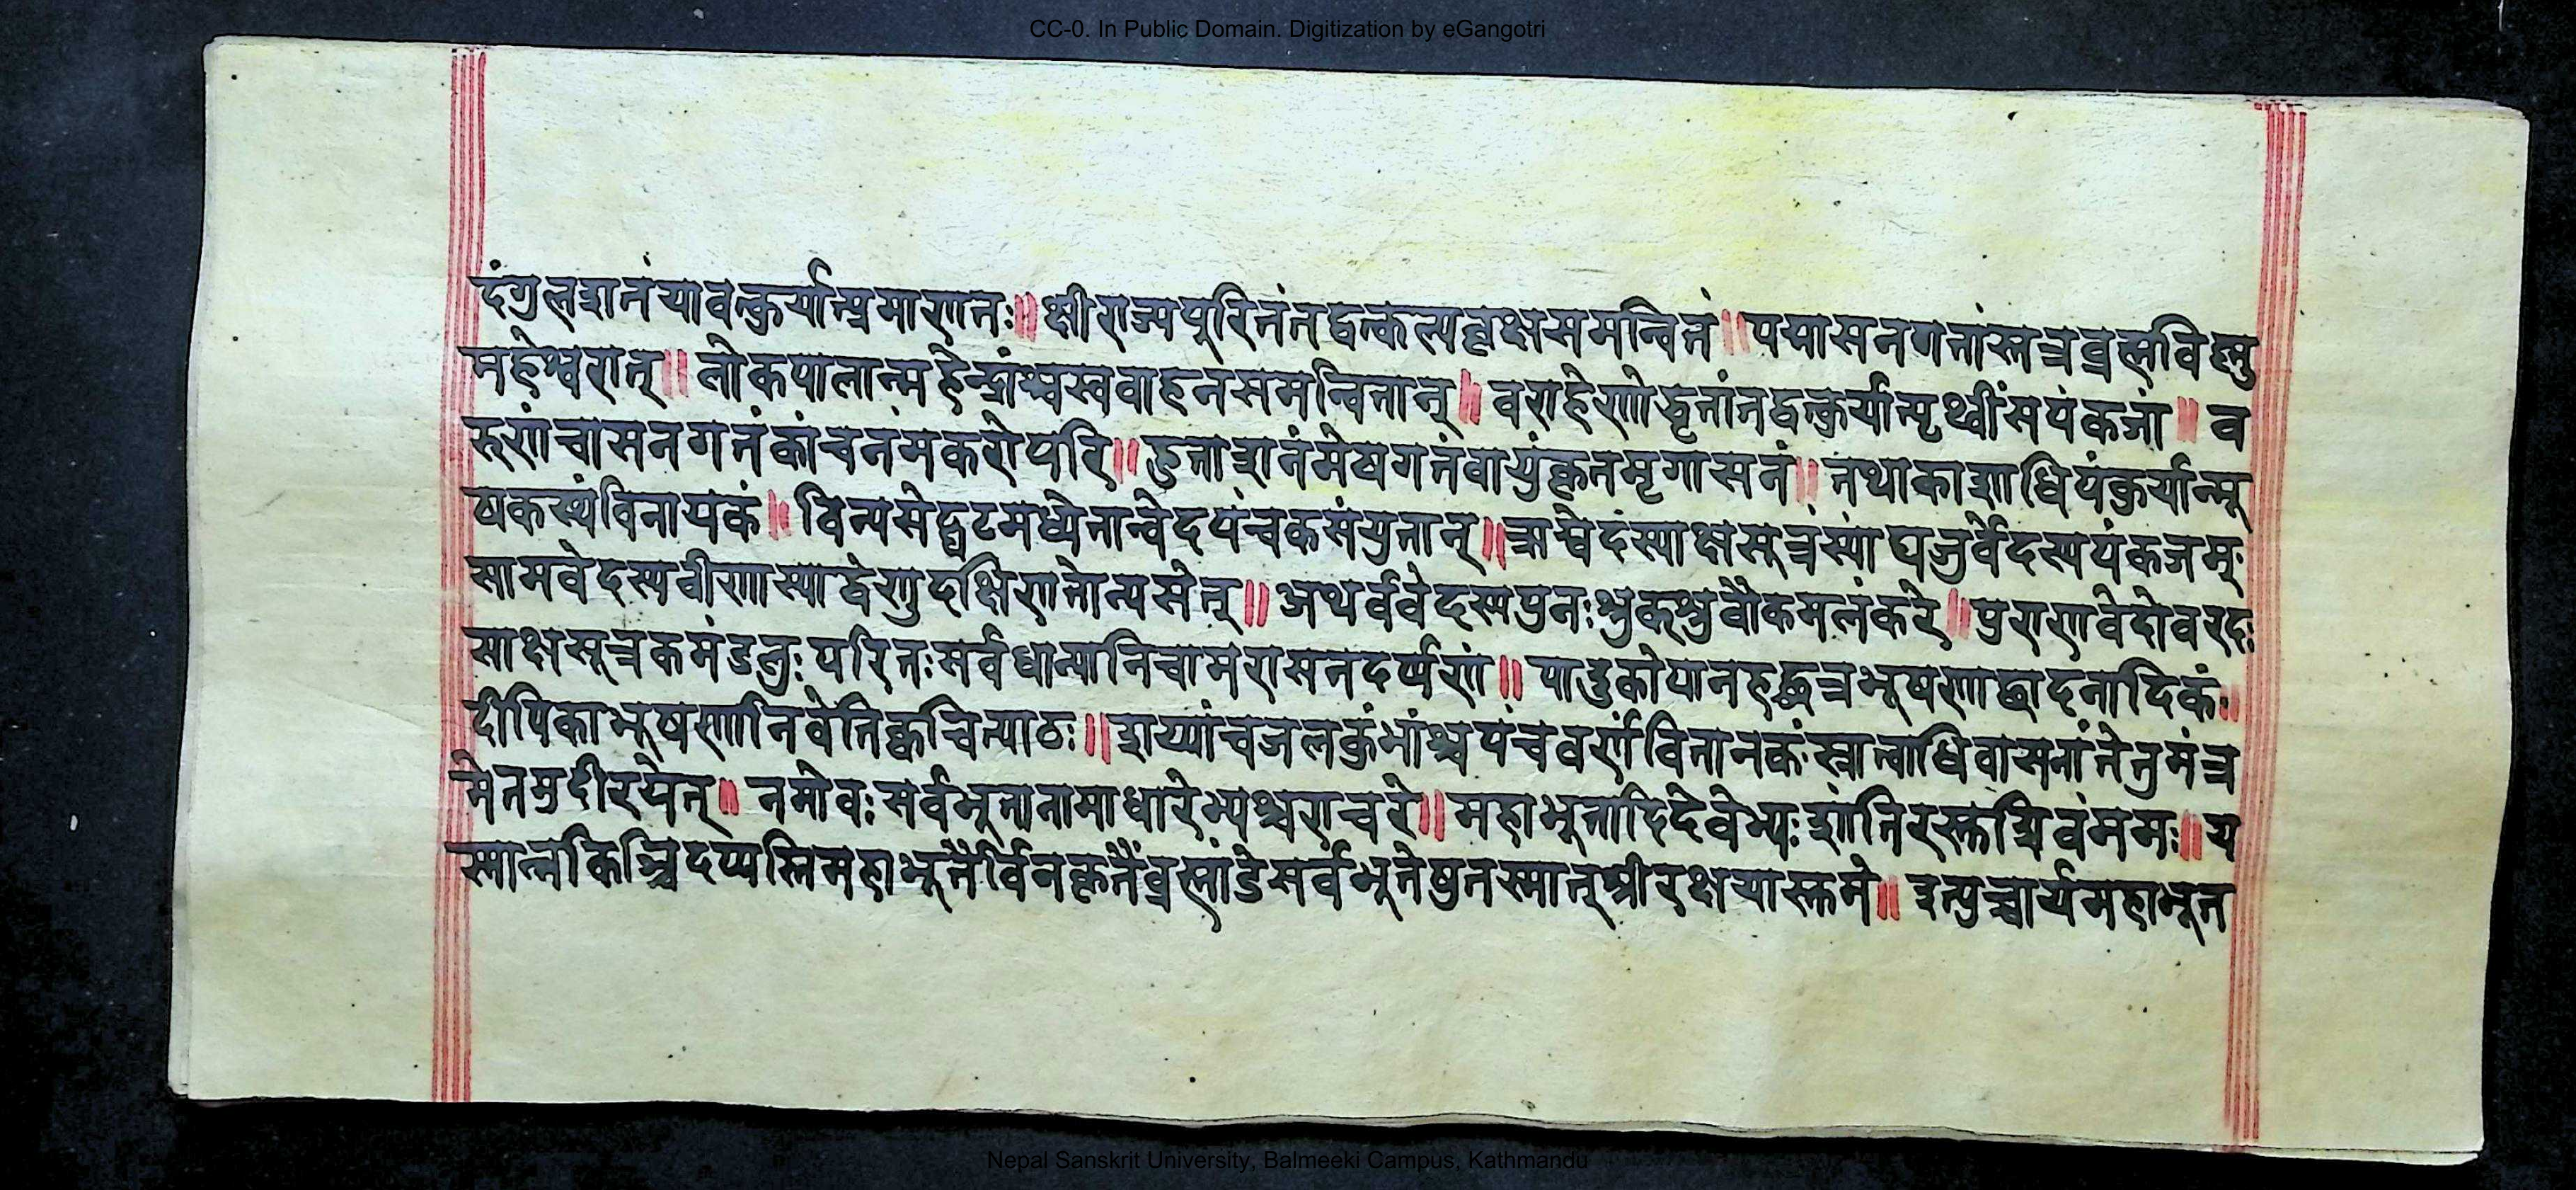 CC-0. In Public Domain. Digitization by eGangotri
दंगुलशतंयावत्कुर्यात्प्रमाणतः॥ क्षीराज्यपूरितंतद्वत्कल्पवृक्षसमन्वितं॥ पद्मासनगतांस्तत्रब्रह्मविष्णु
महेश्वरान्॥ लोकपालान्महेन्द्रांश्चस्ववाहनसमन्वितान्॥ वराहेणोद्धृतांतद्वत्कुर्यात्पृथ्वींसपंकजां॥ व
रुणंचासनगतंकांचनंमकरोपरि॥ हुताशनंमेषगतंवायुंकृतमृगासनं॥ तथाकाशाधिपंकुर्यान्मू
षकस्थंविनायकं॥ विन्यसेद्घटमध्येतान्वेदपंचकसंयुतान्॥ ऋग्वेदस्याक्षसूत्रंस्याद्यजुर्वेदस्यपंकजम्
सामवेदस्यवीणास्याद्वेणुदक्षिणतोन्यसेत्॥ अथर्ववेदस्यपुनःश्रुक्श्रुवौकमलंकरे॥ पुराणवेदोवरदः
साक्षसूत्रकमंडलुः परितःसर्वधान्यानिचामरासनदर्प्पणं॥ पादुकोपानहछत्रभूषणाछादनादिकं॥
दीपिकाभूषणानिवेतिक्वचित्पाठः॥ शय्यांचजलकुंभांश्चपंचवर्णंवितानकंस्नात्वाधिवासनांतेतुमंत्र
मेतमुदीरयेत्॥ नमोवःसर्वभूतानामाधारेभ्यश्चराचरे॥ महाभूतादिदेवेभ्यःशांतिरस्तुशिवंममः॥ य
स्मान्नकिञ्चिदप्यस्तिमहाभूतैर्विनाकृतैंब्रह्मांडेसर्वभूतेषुतस्मात्श्रीरक्षयास्तुमे॥ इत्युच्चार्यमहाभूत
Nepal Sanskrit University, Balmeeki Campus, Kathmandu